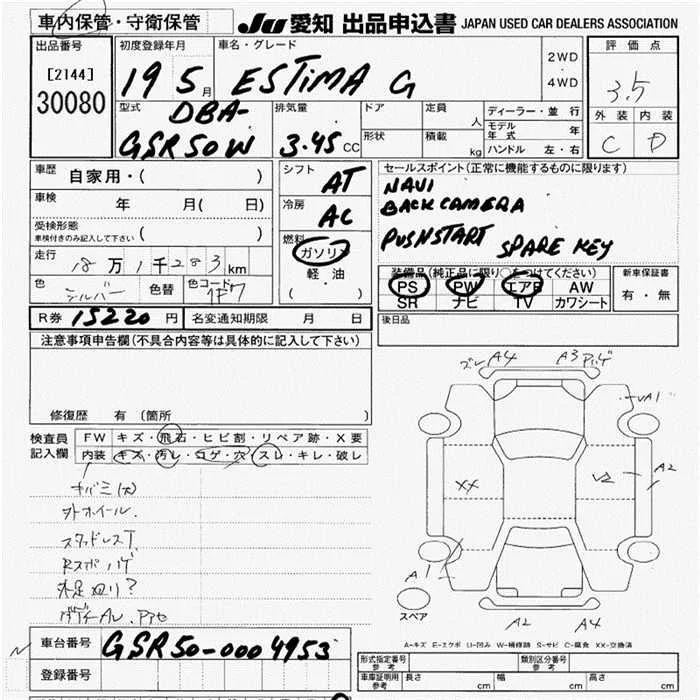 車内保管・守衛保管
JU 愛知 出品申込書 JAPAN USED CAR DEALERS ASSOCIATION
出品番号
[2144]
30080
初度登録年月
19 5 月
車名・グレード
ESTIMA G
2WD
4WD
評価点
3.5
外装 内装
C D
型式
DBA-
GSR50W
排気量
3.45 CC
ドア
形状
定員 人
積載 kg
ディーラー・並行
モデル年式 年
ハンドル 左・右
車歴 自家用・( )
車検 年 月( 日)
受検形態
車検付きのみ記入して下さい ( )
走行
18万1千283km
色 シルバー 色替 色コード 1F7
シフト AT
冷房 AC
燃料
ガソリン
軽油
( )
セールスポイント(正常に機能するものに限ります)
NAVI
BACK CAMERA
PUSHSTART SPARE KEY
装備品(純正品に限り○をつけてください)
PS PW エアB AW
SR ナビ TV カワシート
新車保証書
有・無
R券 15220 円 名変通知期限 月 日
後日品
注意事項申告欄(不具合内容等は具体的に記入して下さい)
修復歴 有(箇所 )
検査員記入欄
FW キズ・飛石・ヒビ割・リペア跡・X要
内装 キズ・汚レ・コゲ・穴・スレ・キレ・破レ
キバミ(大)
外ホイール.
スタッドレスT
Rスポハゲ
ズレ A4 A3
A1
A2
XX
A1
A2 A4
スペア
A-キズ E-エクボ U-凹み W-補修跡 S-サビ C-腐食 XX-交換済
車台番号 GSR50-0004953
登録番号
形式指定番号 参考
類別区分番号 参考
車庫証明用 参考 長さ cm 幅 cm 高さ cm